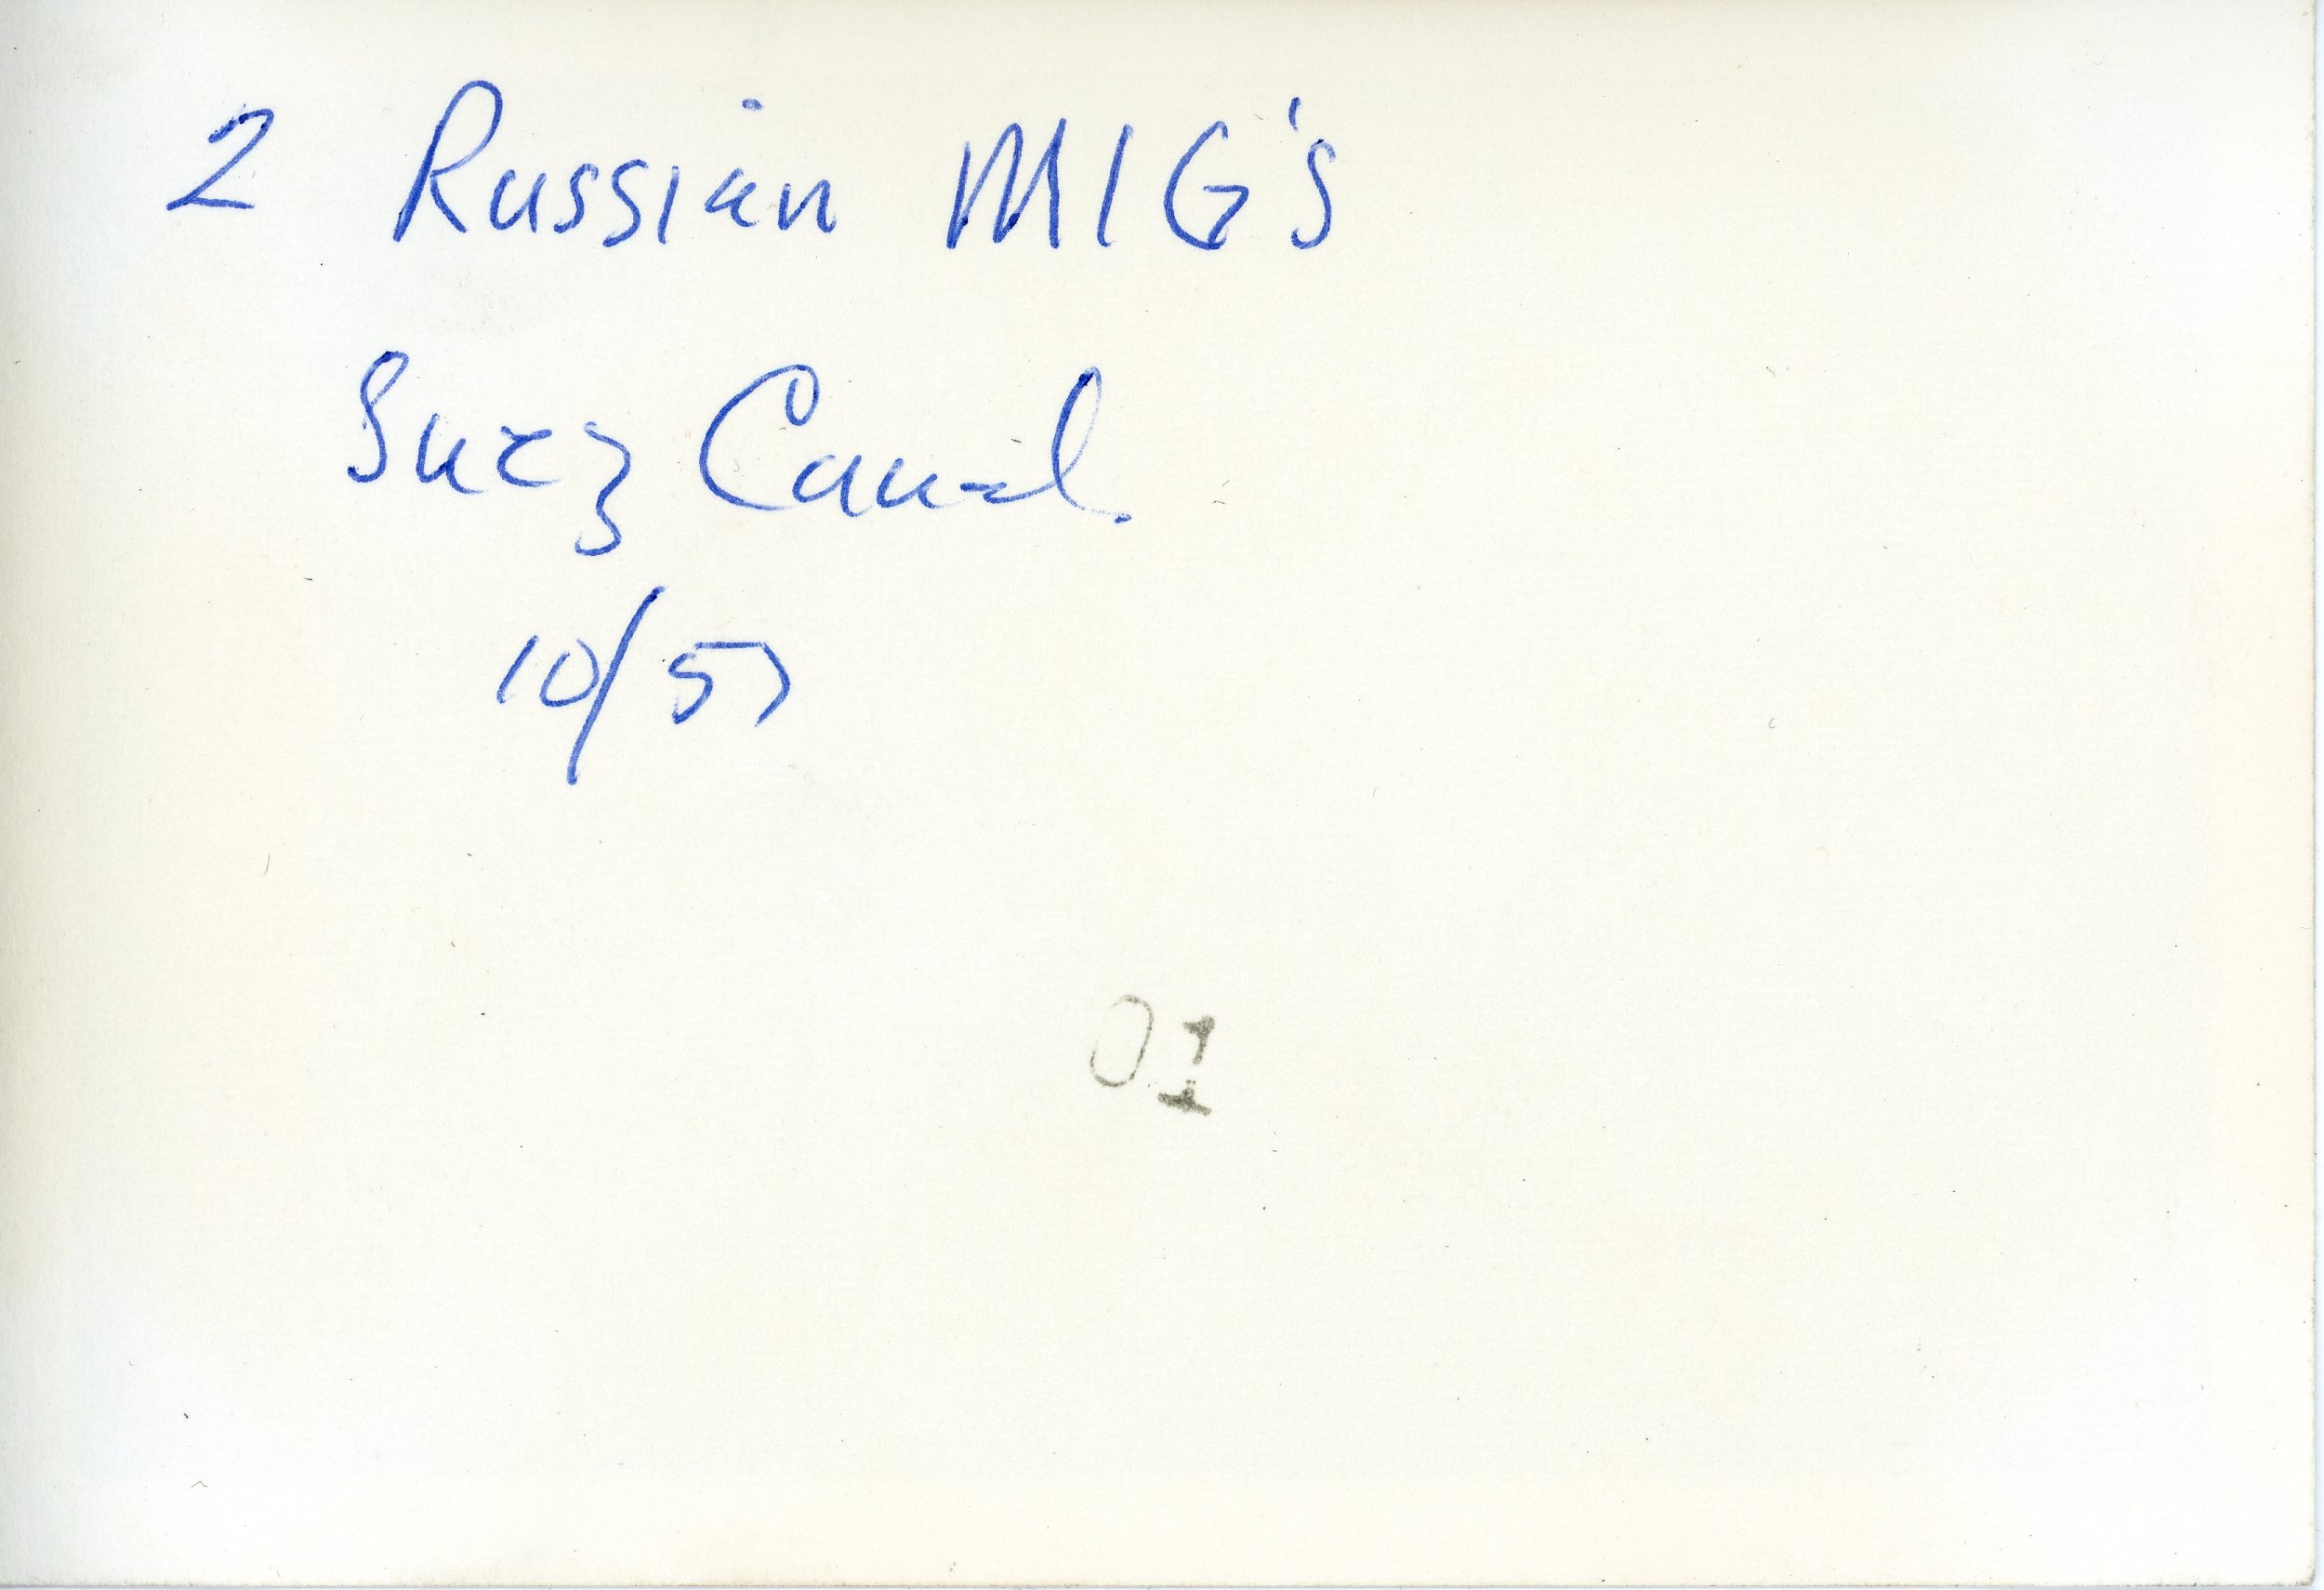 2 Russian MIG's
Suez Canal
10/57
01